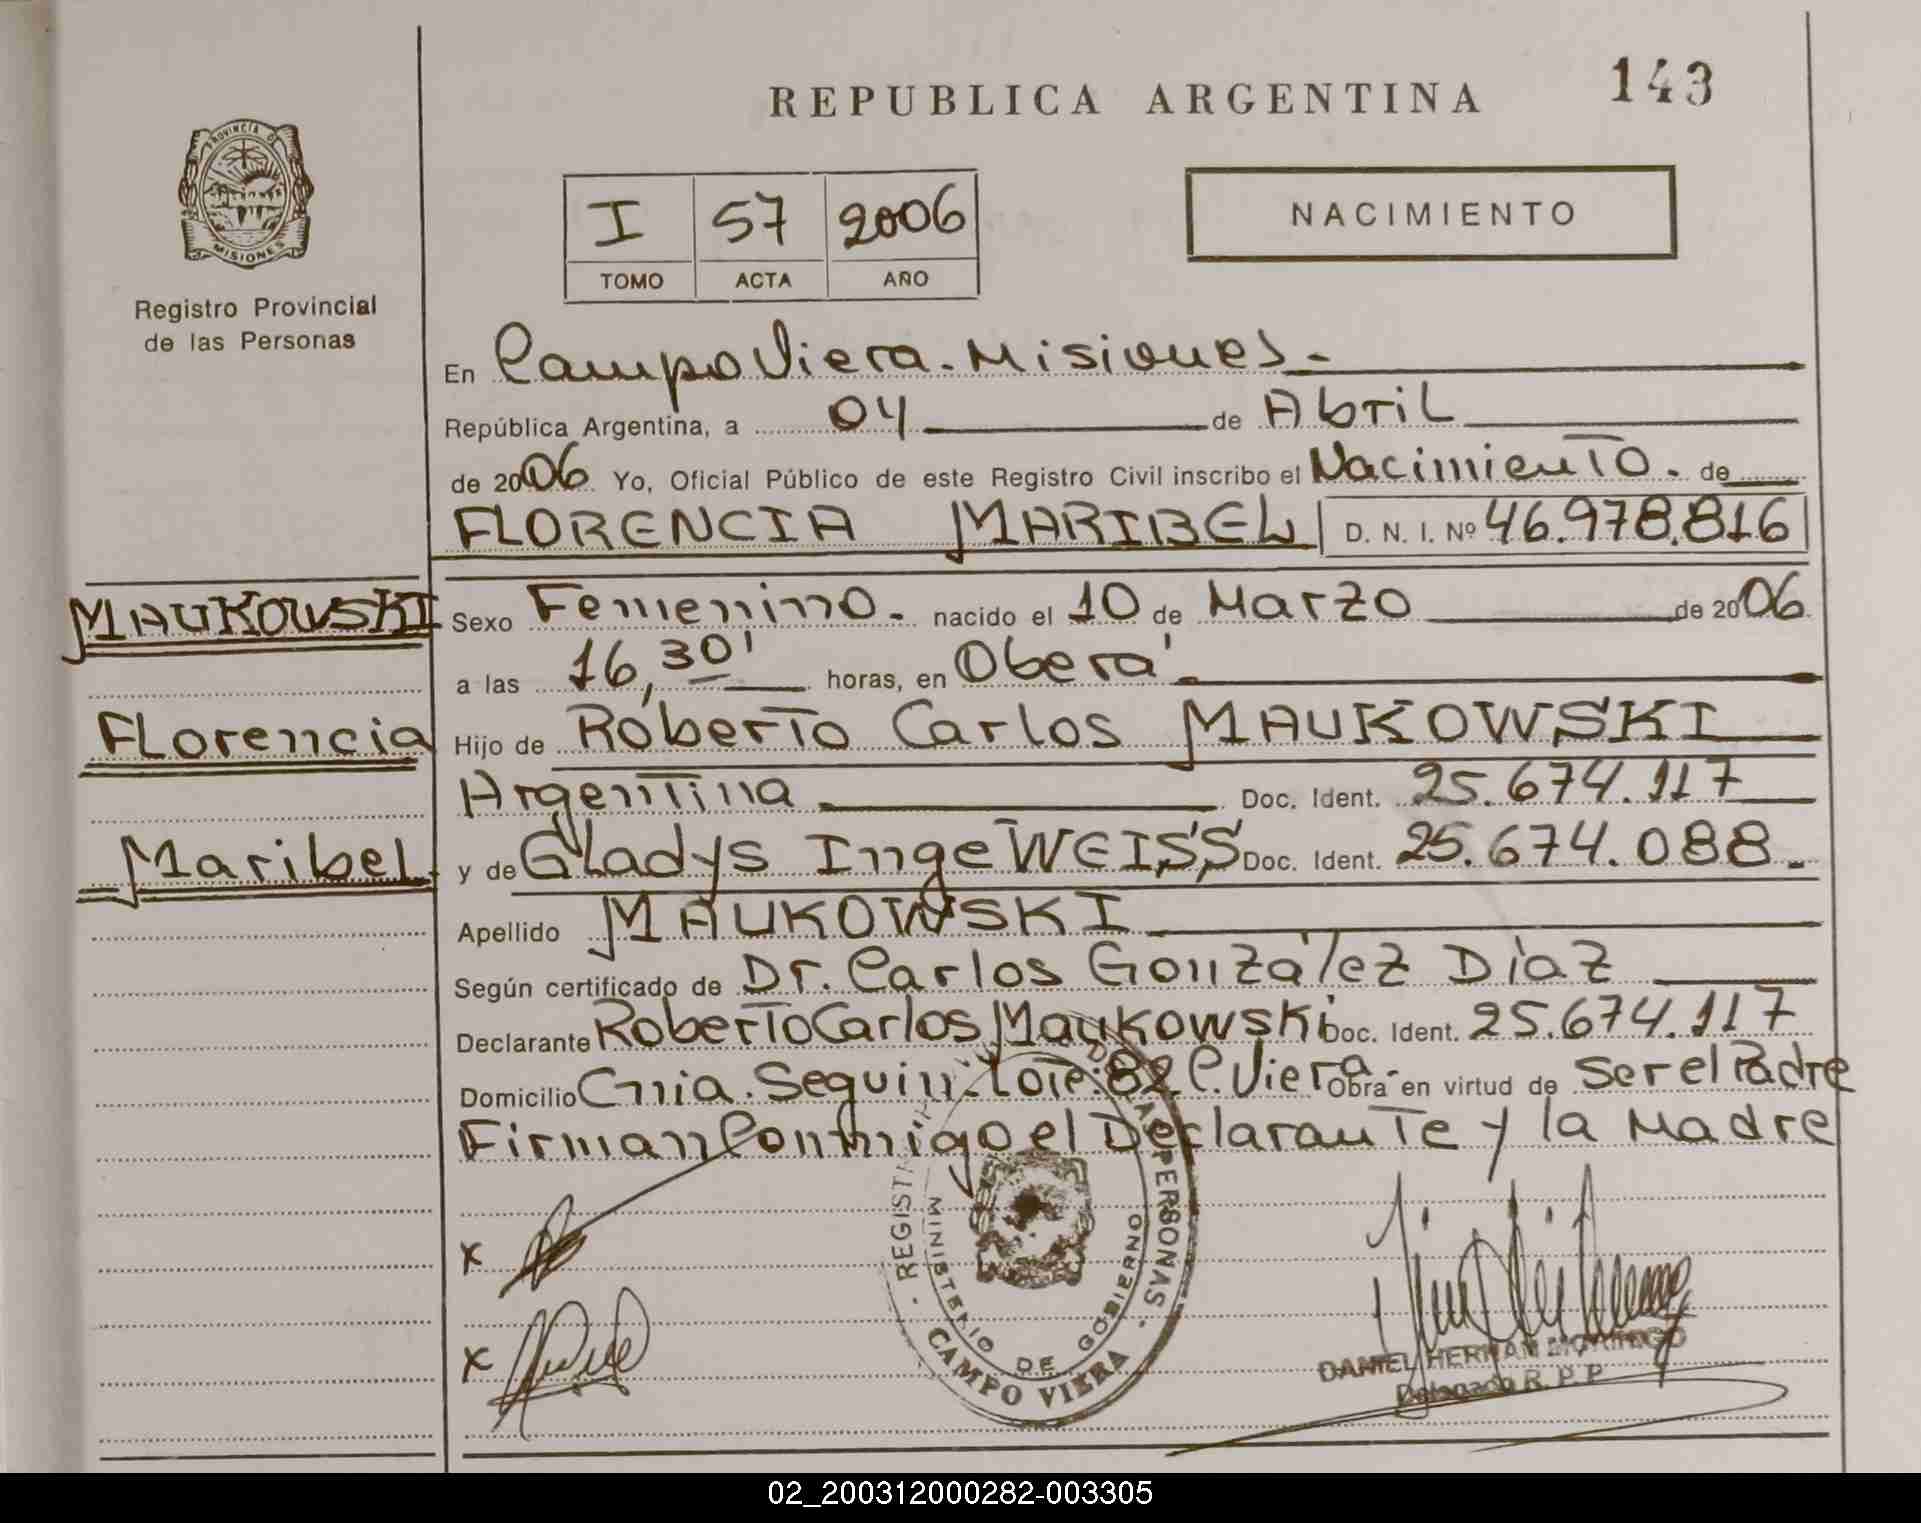 REPUBLICA ARGENTINA 143
PROVINCIA DE MISIONES
Registro Provincial
de las Personas
I 57 2006
TOMO ACTA AÑO
NACIMIENTO
En Campo Viera. Misiones.-
República Argentina, a 04 de Abril
de 2006 Yo, Oficial Público de este Registro Civil inscribo el Nacimiento. de
FLORENCIA MARIBEL D. N. I. Nº 46.978.816
MAUKOWSKI
Florencia
Maribel
Sexo Femenino. nacido el 10 de Marzo de 2006.
a las 16,30' horas, en Oberá.
Hijo de Roberto Carlos MAUKOWSKI
Argentina Doc. Ident. 25.674.117
y de Gladys Inge WEISS Doc. Ident. 25.674.088.
Apellido MAUKOWSKI
Según certificado de Dr. Carlos González Díaz
Declarante Roberto Carlos Maukowski Doc. Ident. 25.674.117
Domicilio Cnia. Seguin. Lote: 82 C. Viera.- Obra en virtud de Ser el Padre
Firman Conmigo el Declarante y la Madre
x
x
REGIST PERSONAS
MINISTERIO DE GOBIERNO
CAMPO VIERA
DANIEL HERNAN MORINIGO
Delegado R. P. P.
02_200312000282-003305